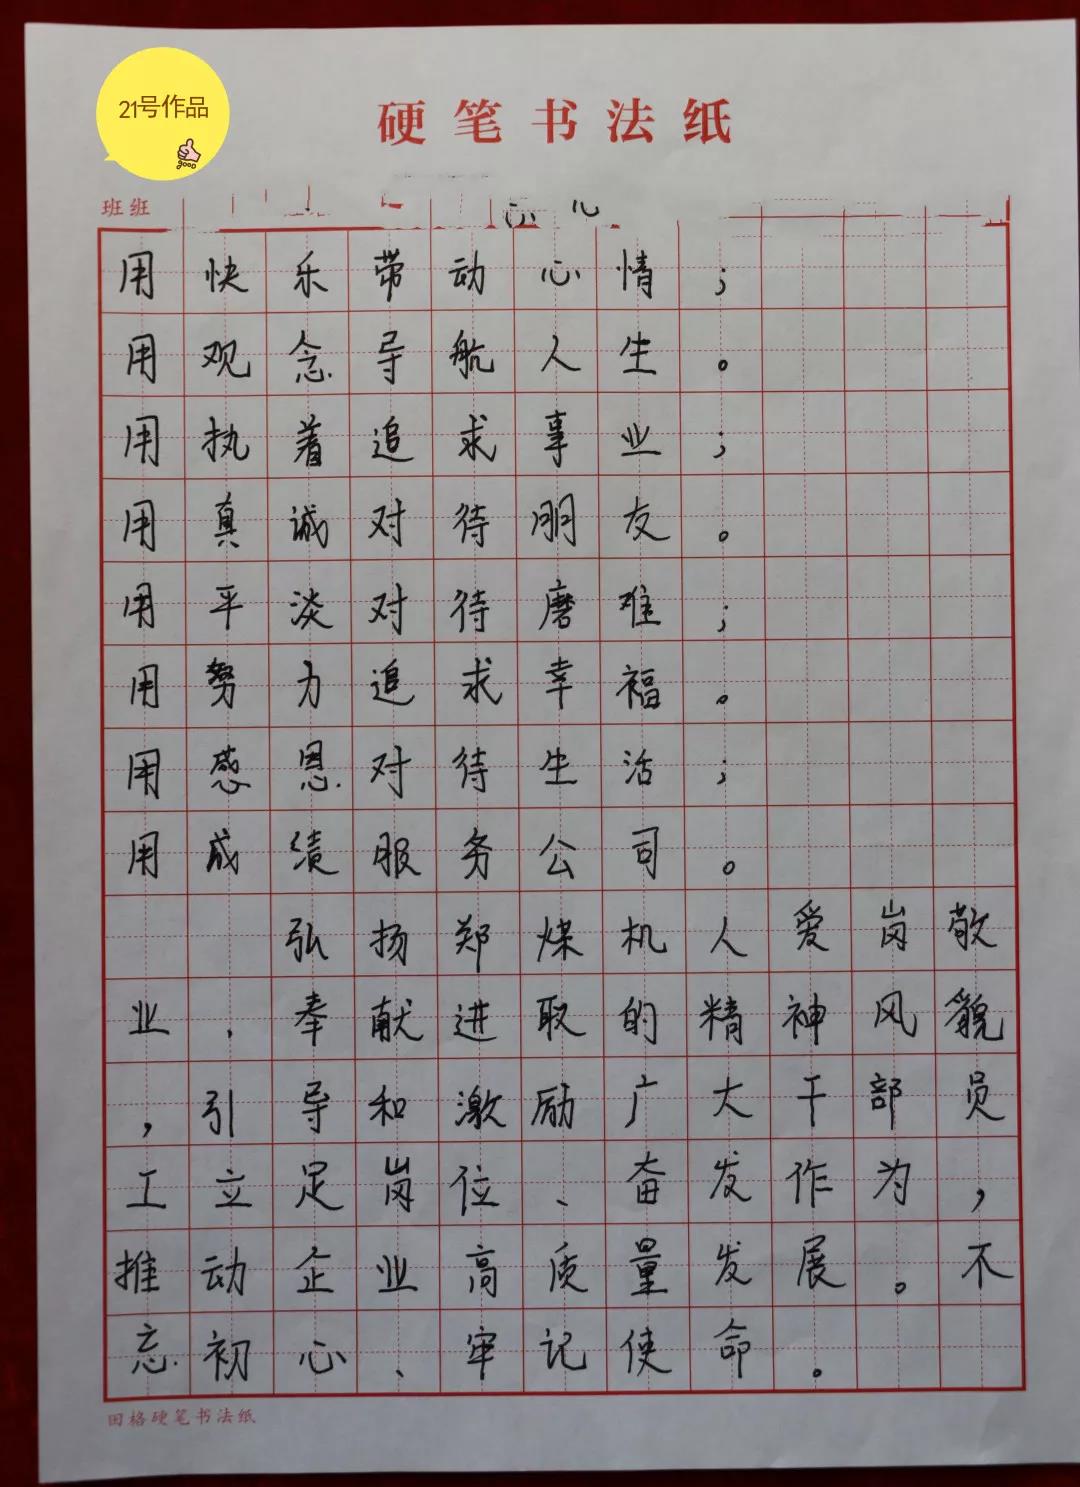 21号作品
good
硬笔书法纸
班班
用快乐带动心情；
用观念导航人生。
用执着追求事业；
用真诚对待朋友。
用平淡对待磨难；
用努力追求幸福。
用感恩对待生活；
用成绩服务公司。
弘扬郑煤机人爱岗敬
业，奉献进取的精神风貌
，引导和激励广大干部员
工立足岗位、奋发作为，
推动企业高质量发展。不
忘初心、牢记使命。
田格硬笔书法纸